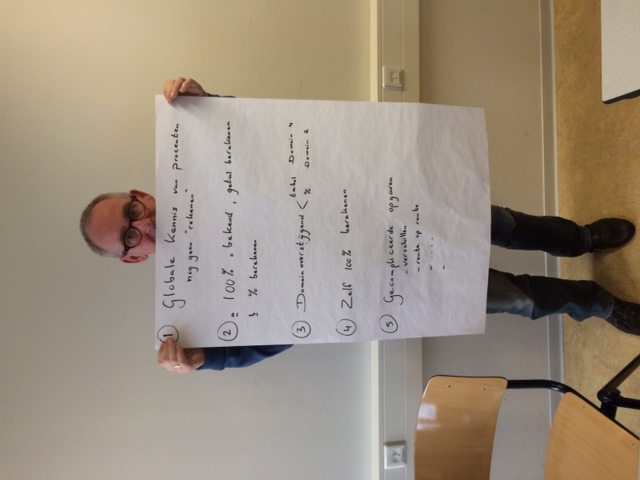 ① Globale Kennis van procenten
nog geen "rekenen"
② a 100% = bekend, getal berekenen
b % berekenen
③ Domeinoverstijgend < tabel Domein 4
% Domein 2
④ Zelf 100% berekenen
⑤ Gecompliceerde opgaven
- verschillen
- rente op rente
- .....
- .....